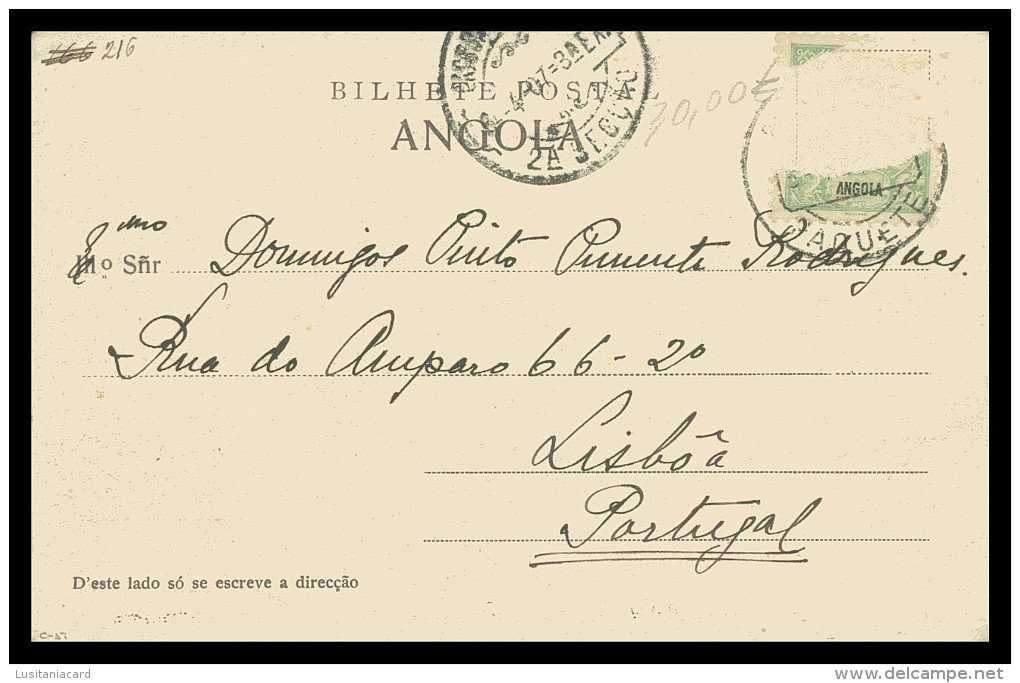 166 216
BILHETE POSTAL
ANGOLA
30,00€
2A SECÇÃO
ANGOLA
PAQUETE
Illº. Sñr Domingos Pinto Pimenta Rodrigues.
Rua do Amparo 66-2º
Lisbôa
Portugal
D'este lado só se escreve a direcção
Lusitaniacard
delcampe.net